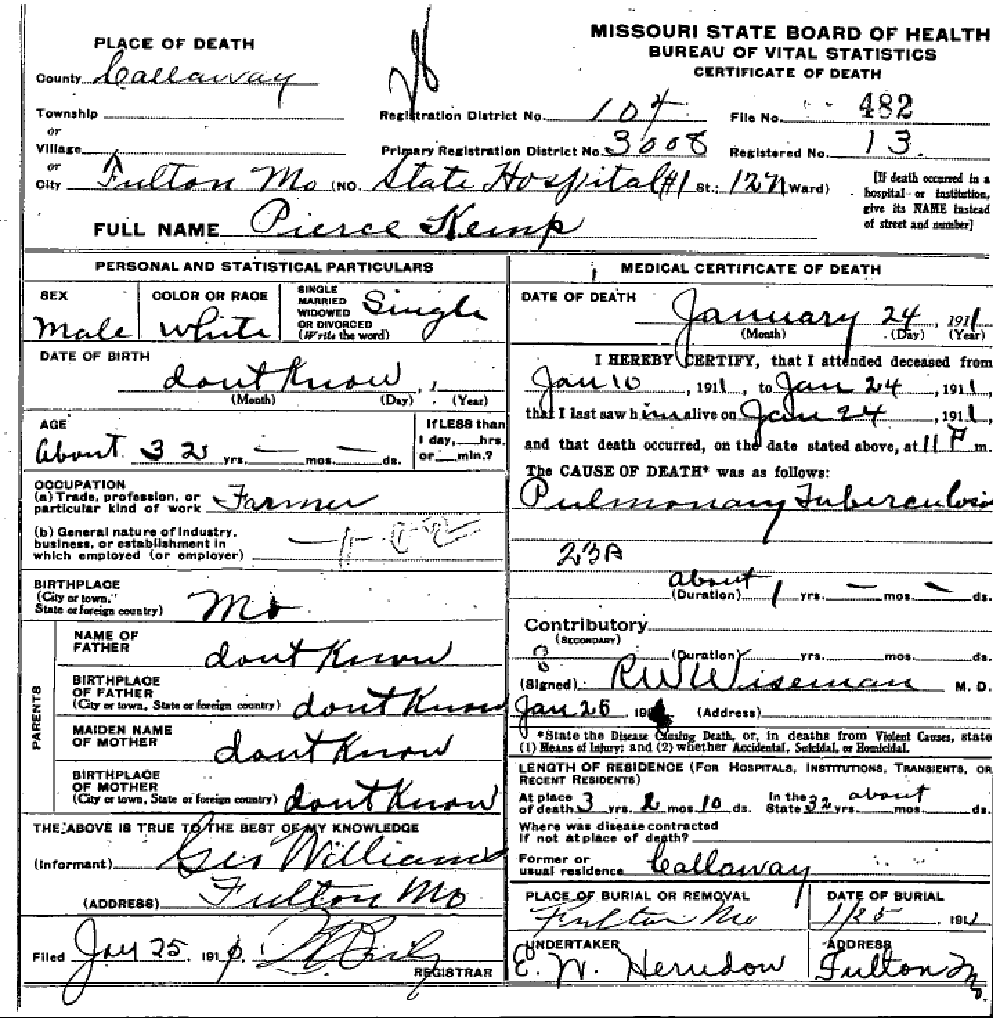 MISSOURI STATE BOARD OF HEALTH
BUREAU OF VITAL STATISTICS
CERTIFICATE OF DEATH
PLACE OF DEATH
County Callaway
28
Township
or
Village
or
City Fulton Mo (No. State Hospital #1 St.; Ward)
Registration District No. 104
File No. 482
Primary Registration District No. 3008
Registered No. 13
[If death occurred in a
hospital or institution,
give its NAME instead
of street and number]
FULL NAME Pierce Kemp
PERSONAL AND STATISTICAL PARTICULARS
SEX
Male
COLOR OR RACE
White
SINGLE
MARRIED
WIDOWED
OR DIVORCED
(Write the word)
Single
DATE OF BIRTH
dont Know
(Month) (Day) (Year)
AGE
About 32 yrs. — mos. — ds.
If LESS than
1 day, hrs.
or min.?
OCCUPATION
(a) Trade, profession, or
particular kind of work Farmer
(b) General nature of industry,
business, or establishment in
which employed (or employer)
BIRTHPLACE
(City or town,
State or foreign country) Mo
PARENTS
NAME OF
FATHER dont Know
BIRTHPLACE
OF FATHER
(City or town, State or foreign country) dont Know
MAIDEN NAME
OF MOTHER dont Know
BIRTHPLACE
OF MOTHER
(City or town, State or foreign country) dont Know
THE ABOVE IS TRUE TO THE BEST OF MY KNOWLEDGE
(Informant) Geo Williams
(ADDRESS) Fulton Mo
Filed Jan 25 191
REGISTRAR
MEDICAL CERTIFICATE OF DEATH
DATE OF DEATH
January 24, 1911
(Month) (Day) (Year)
I HEREBY CERTIFY, that I attended deceased from
Jan 10, 1911, to Jan 24, 1911,
that I last saw him alive on Jan 24, 1911,
and that death occurred, on the date stated above, at 11 P m.
The CAUSE OF DEATH* was as follows:
Pulmonary Tuberculosis
23A
about
(Duration) 1 yrs. — mos. — ds.
Contributory
(SECONDARY)
(Duration) yrs. mos. ds.
(Signed) RW Wiseman M. D.
Jan 26 191 (Address)
*State the Disease Causing Death, or, in deaths from Violent Causes, state
(1) Means of Injury; and (2) whether Accidental, Suicidal, or Homicidal.
LENGTH OF RESIDENCE (FOR HOSPITALS, INSTITUTIONS, TRANSIENTS, OR
RECENT RESIDENTS)
At place
of death 3 yrs. 2 mos. 10 ds. In the State 32 yrs. about mos. ds.
Where was disease contracted
if not at place of death?
Former or
usual residence Callaway
PLACE OF BURIAL OR REMOVAL
Fulton Mo
DATE OF BURIAL
1/25 1911
UNDERTAKER
E. W. Herndon
ADDRESS
Fulton Mo